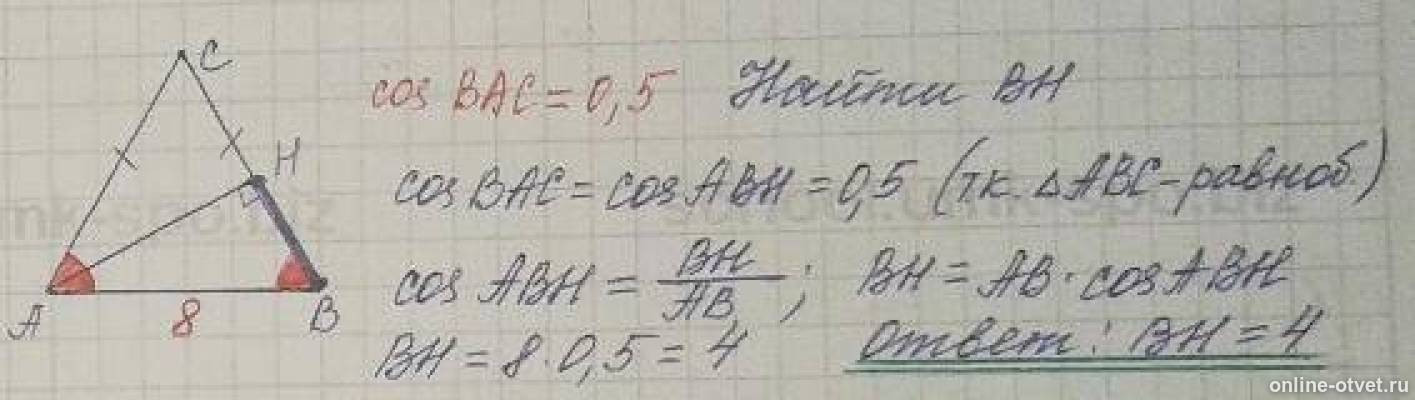 C
cos BAC = 0,5 Найти BH
H
cos BAC = cos ABH = 0,5 (т.к. △ABC - равноб.)
cos ABH = BH/AB ; BH = AB · cos ABH
A 8 B
BH = 8 · 0,5 = 4 Ответ: BH = 4
online-otvet.ru